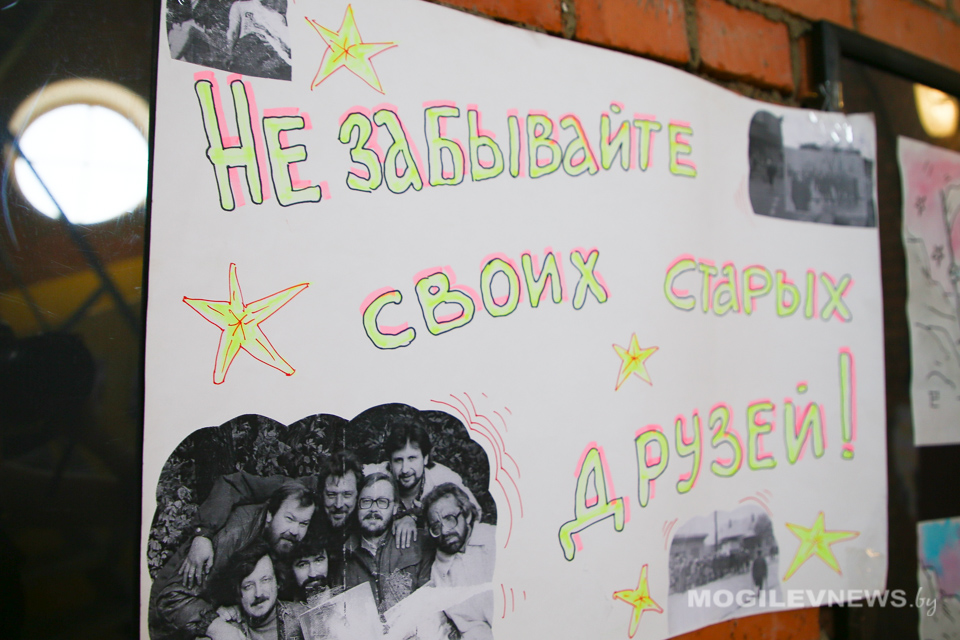 Не забывайте
своих старых
друзей!
MOGILEVNEWS.by